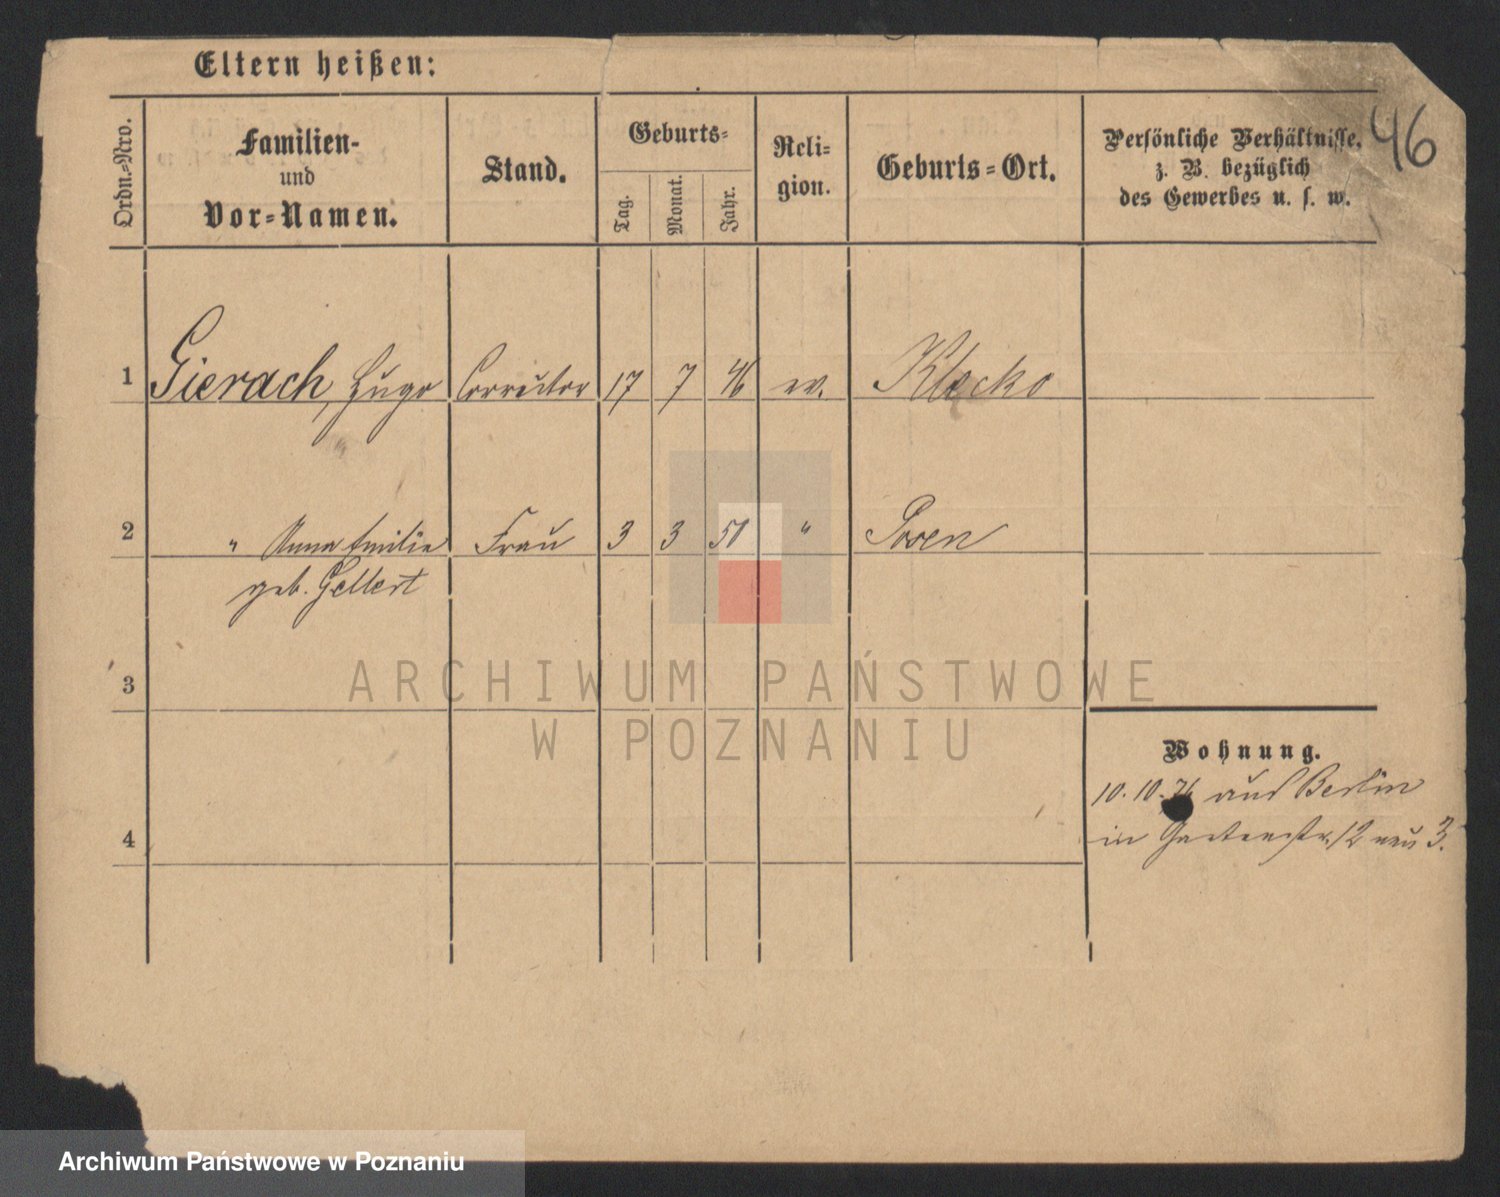 Eltern heißen:
46
Ordn.-Nro.
Familien-
und
Vor-Namen.
Stand.
Geburts-
Tag.
Monat.
Jahr.
Reli-
gion.
Geburts-Ort.
Persönliche Verhältnisse,
z. B. bezüglich
des Gewerbes u. s. w.
1 Gierach, Hugo Corrector 17 7 46 ev. Klecko
2 " Anna Emilie Frau 3 3 50 " Posen
geb. Gellert
3
4
Wohnung.
10.10.76 aus Berlin
in Gartenstr. 12 neu 3.
ARCHIWUM PAŃSTWOWE
W POZNANIU
Archiwum Państwowe w Poznaniu